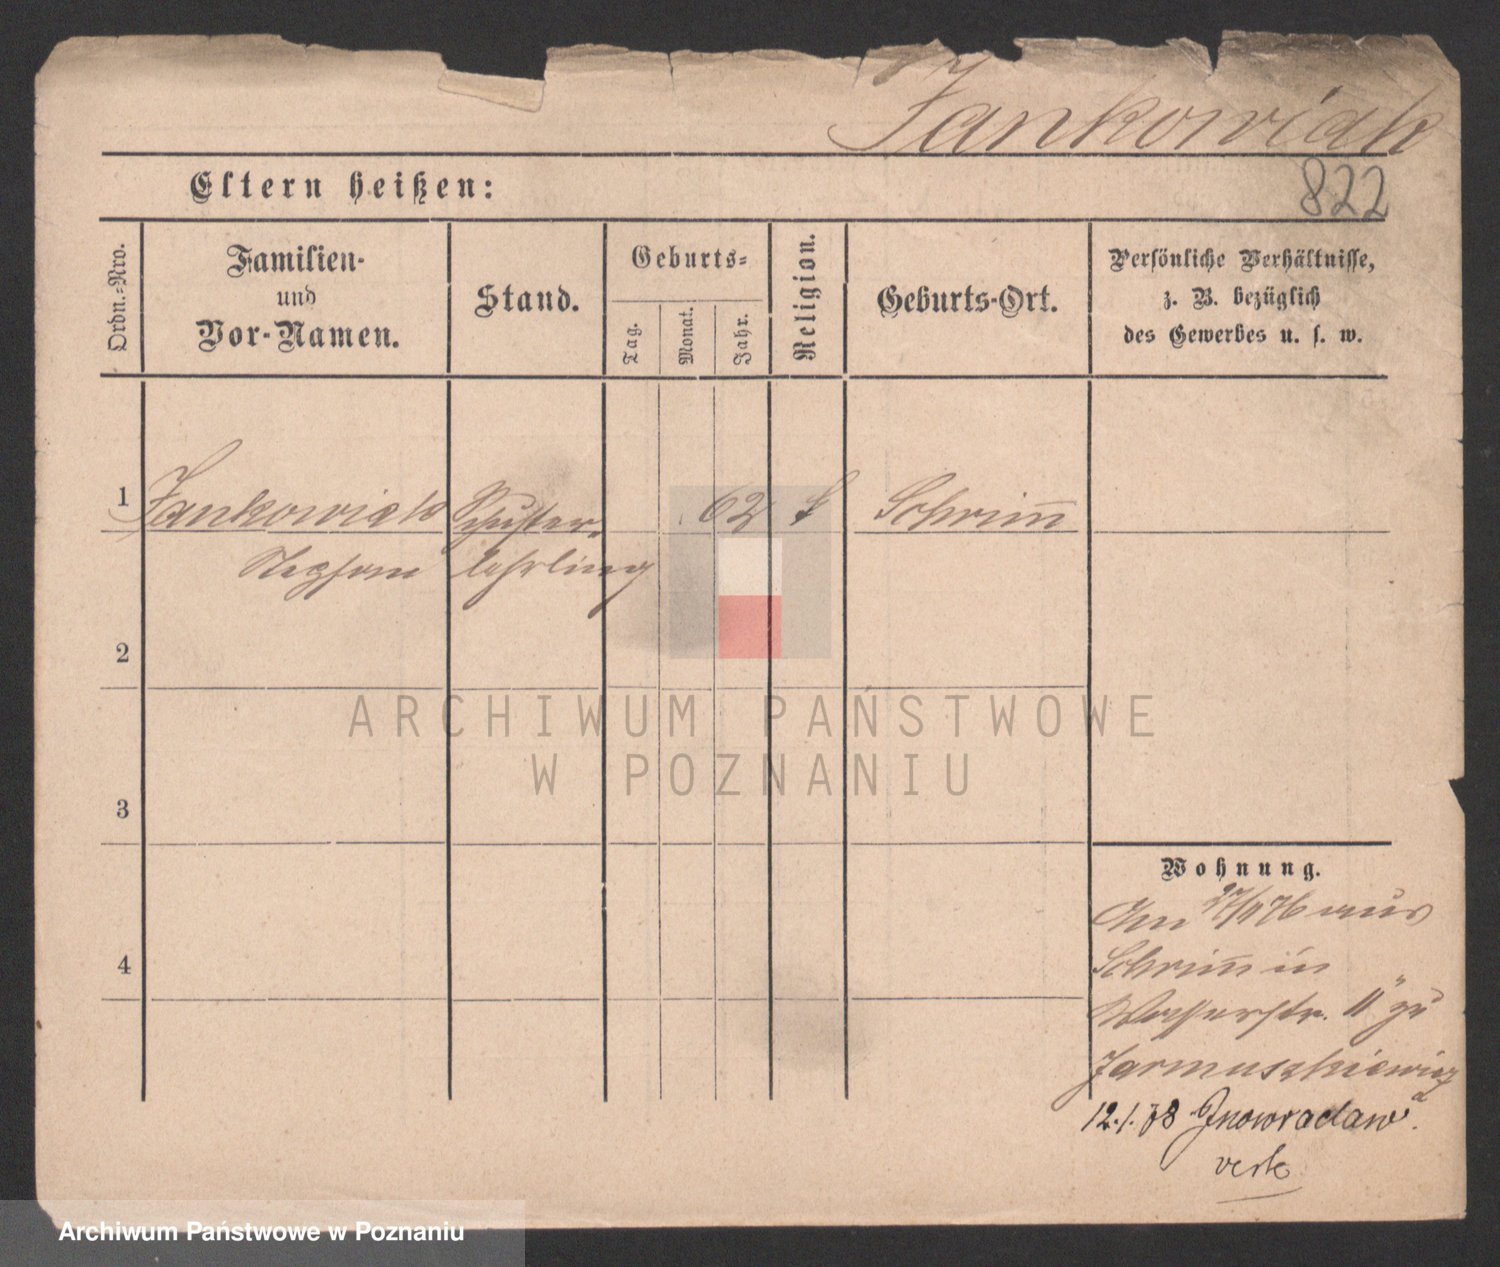 Jankowiak
822
Eltern heißen:
Ordn.-Nro.
Familien-
und
Vor-Namen.
Stand.
Geburts-
Tag.
Monat.
Jahr.
Religion.
Geburts-Ort.
Persönliche Verhältnisse,
z. B. bezüglich
des Gewerbes u. s. w.
1
Jankowiak
Schuster-
62
Schrim̄
Stephan
lehrling
2
3
4
Wohnung.
Am 27/11 76 aus
Schrim̄ in
Wasserstr. 11 zu
Jarmuszkiewicz
12.1.78 Inowraclaw
ARCHIWUM PAŃSTWOWE
W POZNANIU
Archiwum Państwowe w Poznaniu